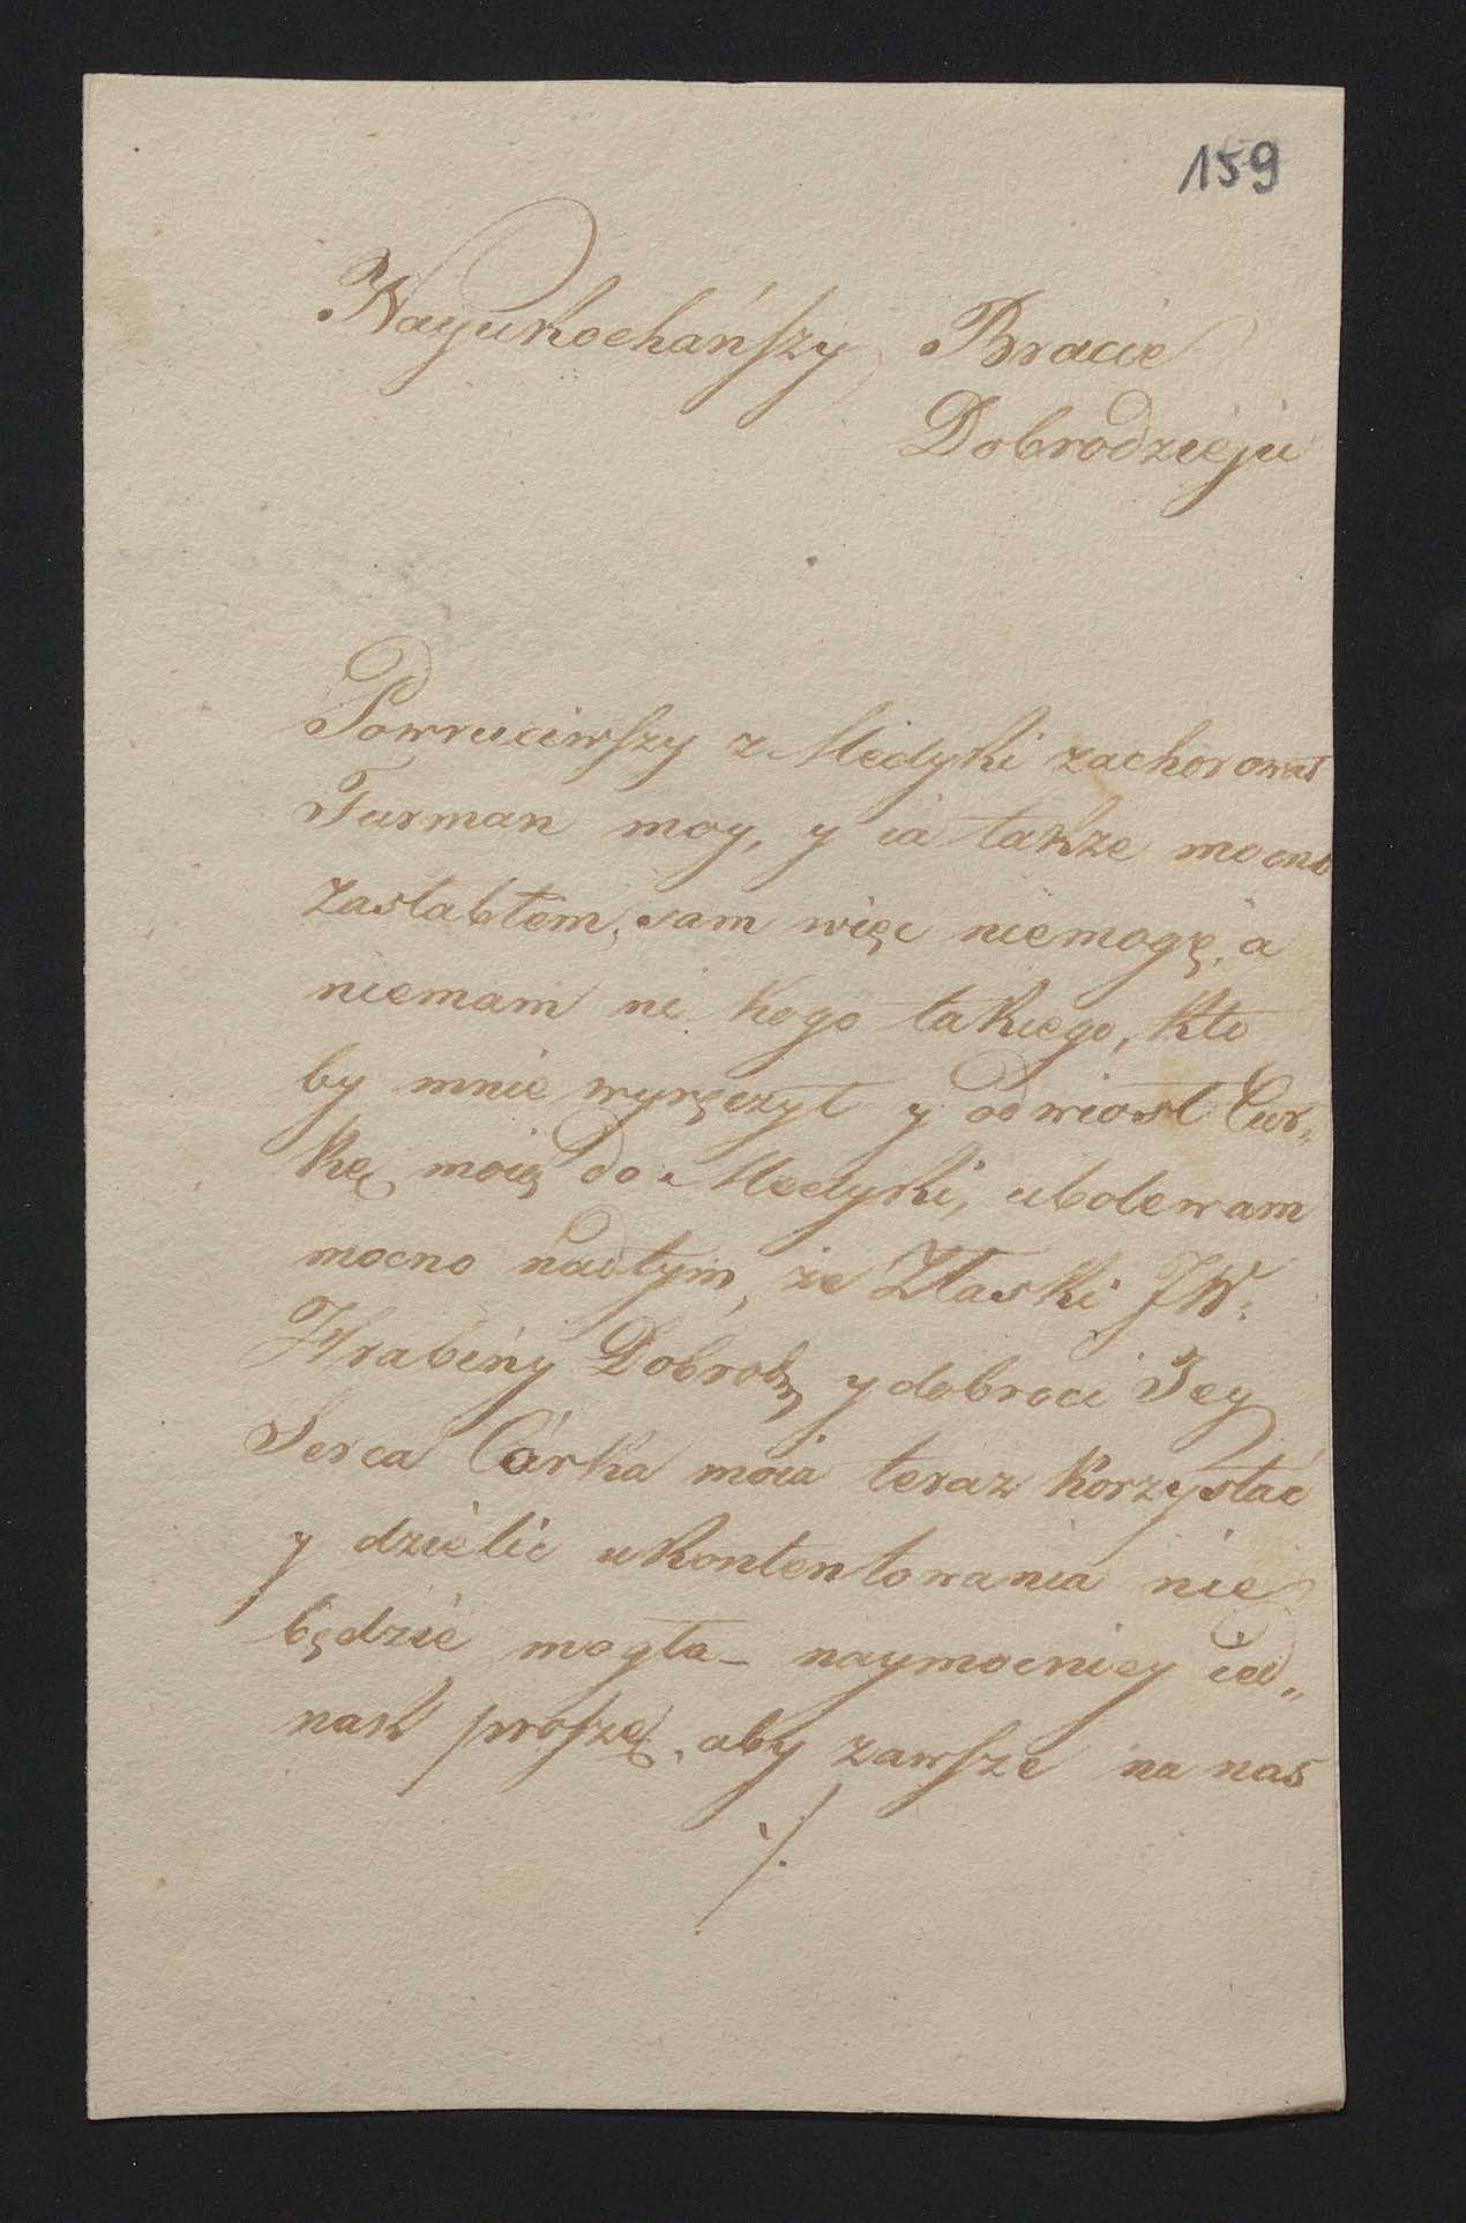 159
Nayukochańszy Bracie
Dobrodzieju
Powruciwszy z Medyki zachorował
Furman moy, y ia także mocno
Zasłabłem, sam więc niemogę, a
niemam ni kogo takiego, kto
by mnie wyręczył y odwiosł Cur„
kę moię do Medyki, ubolewam
mocno nadtym, że Złaski JW.
Hrabiny Dobrodz y dobroci Jey
Serca Córka moia teraz korzystać
y dzielic ukontentowania nie
będzie mogła_ naymocniey ied„
nak proszę, aby zawsze na nas
./.